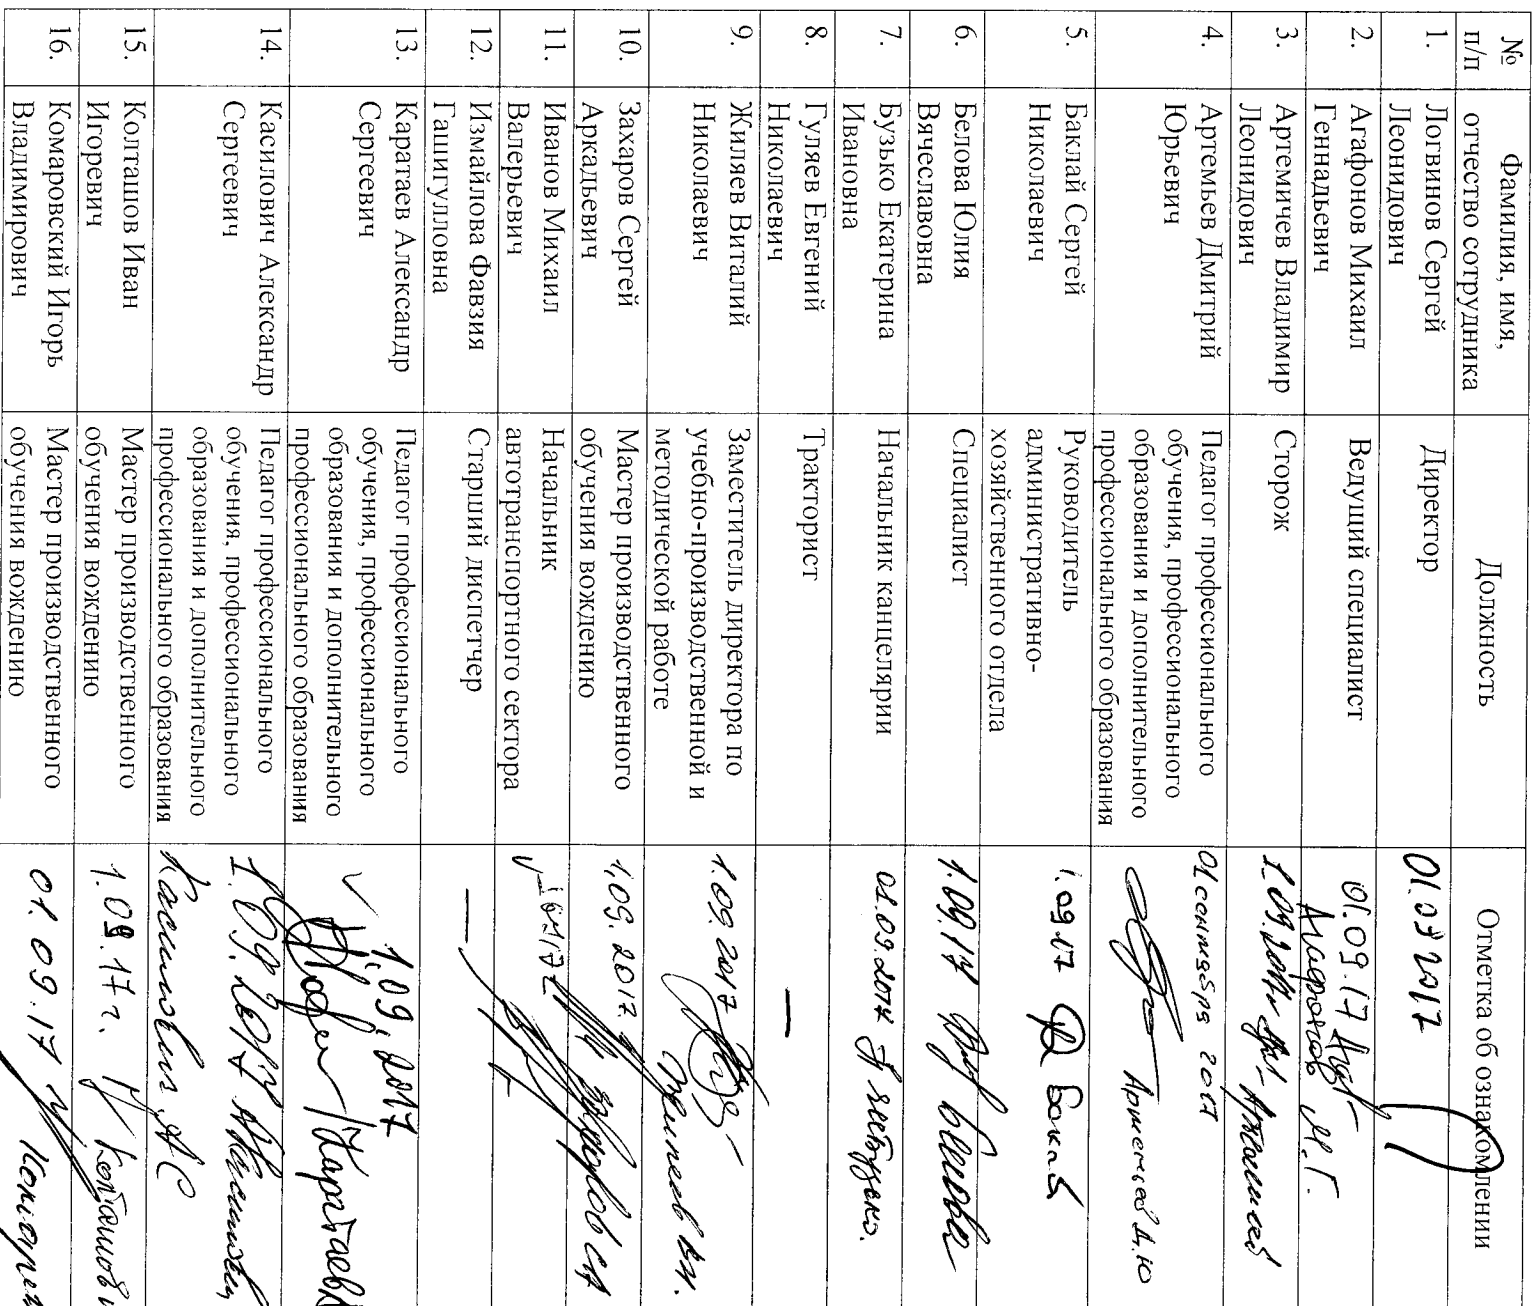 №
п/п
Фамилия, имя,
отчество сотрудника
Должность
Отметка об ознакомлении
1.
Логвинов Сергей
Леонидович
Директор
2.
Агафонов Михаил
Геннадьевич
Ведущий специалист
01.09.17
Агафонов М.Г.
3.
Артемичев Владимир
Леонидович
Сторож
4.
Артемьев Дмитрий
Юрьевич
Педагог профессионального
обучения, профессионального
образования и дополнительного
профессионального образования
01 сентября 2017
Артемьев Д.Ю
5.
Баклай Сергей
Николаевич
Руководитель
административно-
хозяйственного отдела
1.09.17
6.
Белова Юлия
Вячеславовна
Специалист
1.09.17 Белова
7.
Бузько Екатерина
Ивановна
Начальник канцелярии
8.
Гуляев Евгений
Николаевич
Тракторист
—
9.
Жиляев Виталий
Николаевич
Заместитель директора по
учебно-производственной и
методической работе
1.09.2017
Жиляев В.Н.
10.
Захаров Сергей
Аркадьевич
Мастер производственного
обучения вождению
1.09.2017
11.
Иванов Михаил
Валерьевич
Начальник
автотранспортного сектора
12.
Измайлова Фавзия
Гашигулловна
Старший диспетчер
—
13.
Каратаев Александр
Сергеевич
Педагог профессионального
обучения, профессионального
образования и дополнительного
профессионального образования
1.09.2017
Каратаев
14.
Касилович Александр
Сергеевич
Педагог профессионального
обучения, профессионального
образования и дополнительного
профессионального образования
1.09.2017
Касилович А С
15.
Колташов Иван
Игоревич
Мастер производственного
обучения вождению
1.09.17г. Колташов
16.
Комаровский Игорь
Владимирович
Мастер производственного
обучения вождению
01.09.17